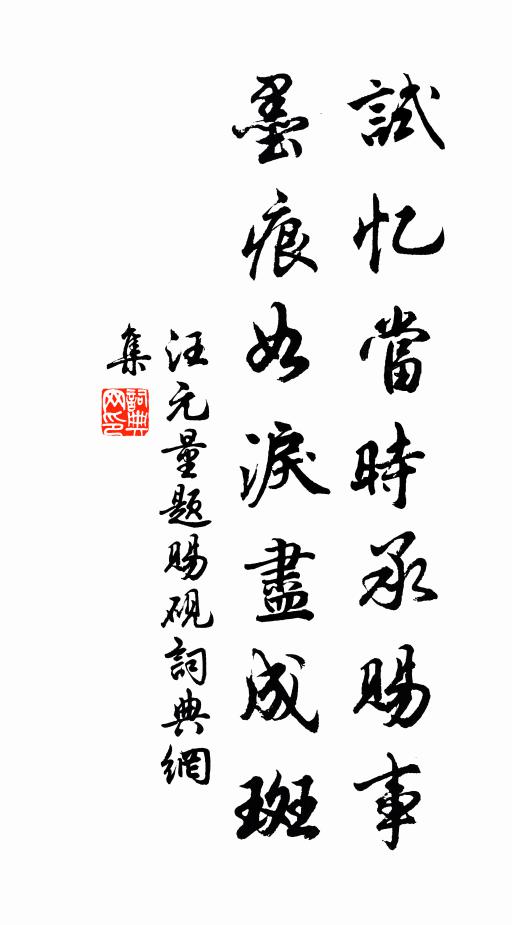 試忆當時承賜事
墨痕如淚盡成斑
汪元量題賜硯詞典網
集
詞典
网印